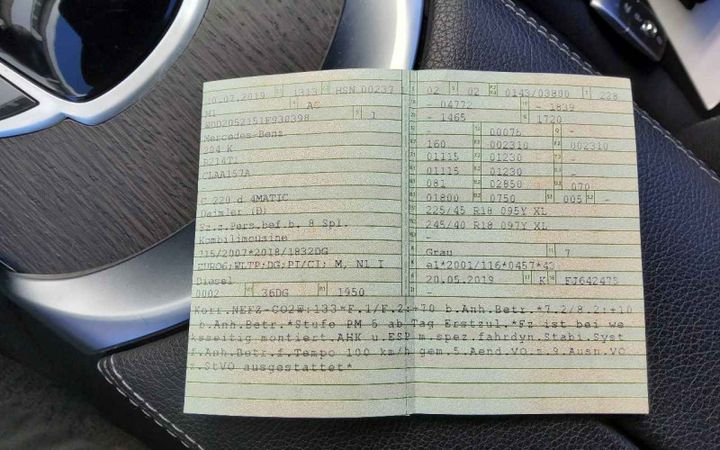 10.07.2019 1313 HSN 00237
M1 AC
WDD2052151F930398 1
Mercedes-Benz
204 K
R2147I
CLAA157A
C 220 d 4MATIC
Daimler (D)
Fz.z.Pers.bef.b. 8 Spl.
Kombilimousine
715/2007*2018/1832DG
EURO6;WLTP;DG;PI/CI; M, N1 I
Diesel
0002 36DG 1950
02 02 0143/03800 228
- 04772 - 1839
- 1465 1720
- 00076 -
160 002310 002310
01115 01230 -
01115 01230 -
081 02850 070
01800 0750 005 -
225/45 R18 095Y XL
245/40 R18 097Y XL
-
Grau 7
e1*2001/116*0457*43
20.05.2019 K FJ642475
Korr.NEFZ-CO2W:133*F.1/F.2:+70 b.Anh.Betr.*7.2/8.2:+10
b.Anh.Betr.*Stufe PM 5 ab Tag Erstzul.*Fz ist bei we
ksseitig montiert.AHK u.ESP m.spez.fahrdyn.Stabi.Syst
f.Anh.Betr.f.Tempo 100 km/h gem.5.Aend.VO.z.9.Ausn.VO
z.StVO ausgestattet*